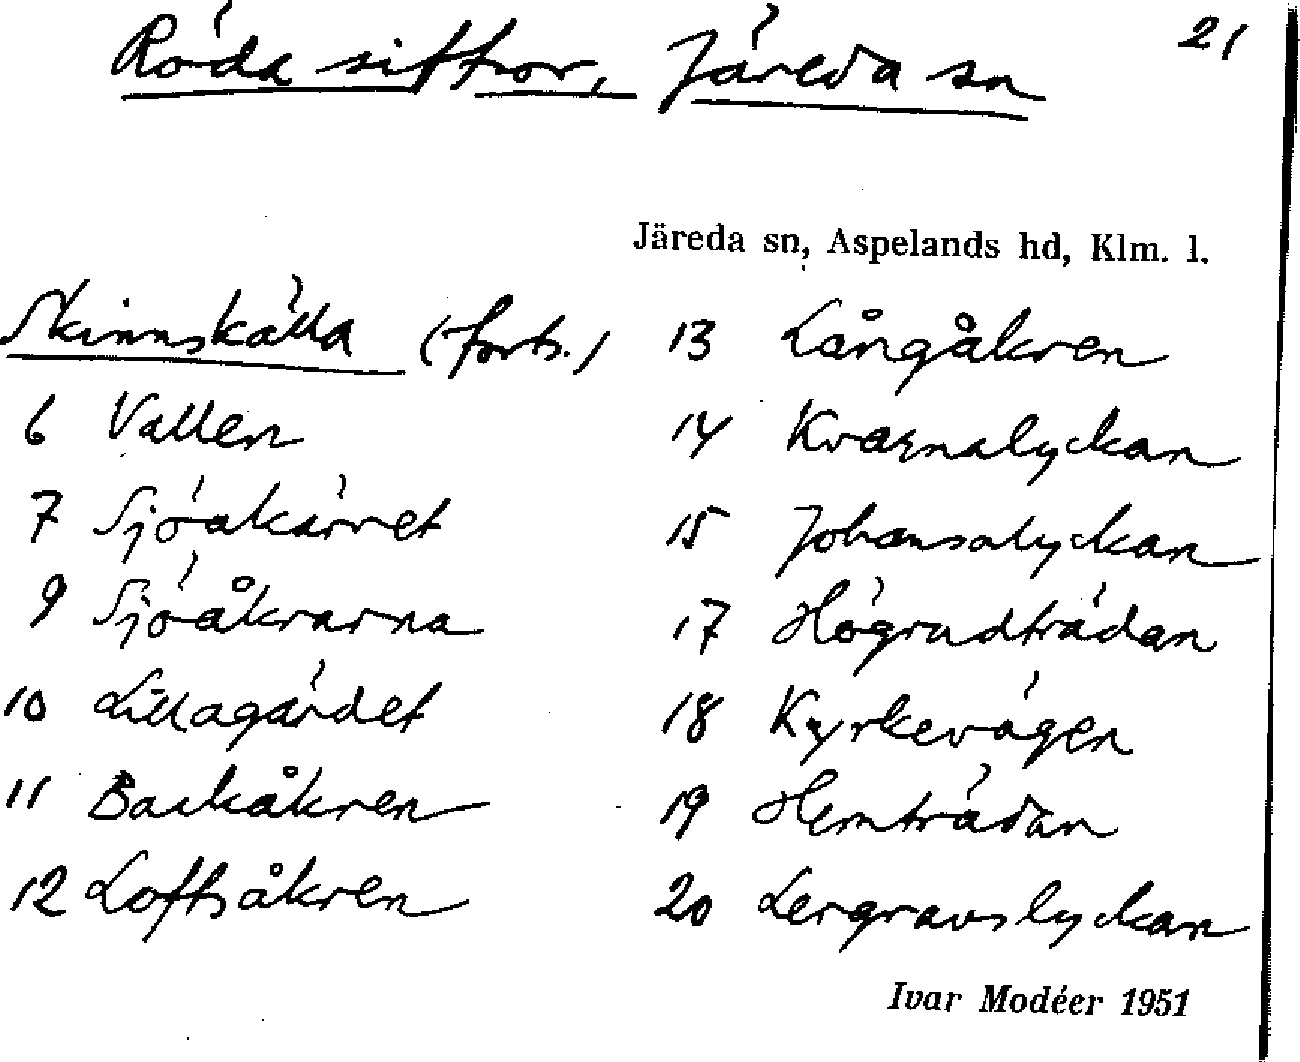 Röda siffror, Järeda sn
21
Järeda sn, Aspelands hd, Klm. l.
Skinnskälla (forts.)
6 Vallen
7 Sjöakärret
9 Sjöåkrarna
10 Lillagärdet
11 Backåkren
12 Loftsåkren
13 Långåkren
14 Kvarnalyckan
15 Johansalyckan
17 Högrudträdan
18 Kyrkevägen
19 Hemträdan
20 Lergravslyckan
Ivar Modéer 1951